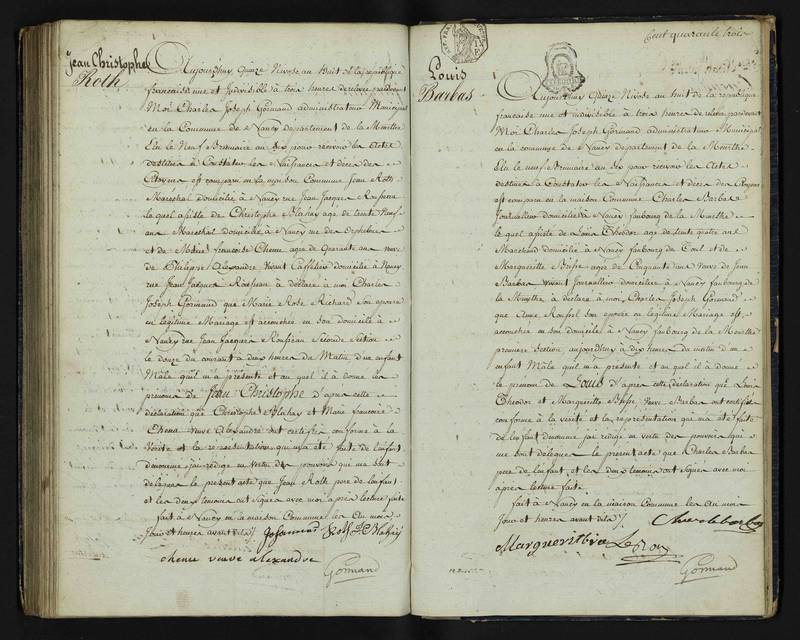 Jean Christophe
Roth
Aujourdhuy Quinze Nivose an huit de la république
francaise une et indivisible à trois heures de relevée pardevant
Moi Charles Joseph Gormand administrateur Municipal
en la Commune de Nancy departement de la Meurthe
Elu le Neuf Brumaire an six pour recevoir les Actes
destinés à Constater les Naissances et décès des
Citoyens est comparu en la maison Commune Jean Roth
Marechal domicilié à Nancy rue Jean Jacques Rousseau
le quel assisté de Christophe Blahay agé de trente Neuf
ans Marechal domicilié à Nancy rue des Orphelines
et de Marie francoise Chenu agée de Quarante ans veuve
de Philippe Alexandre vivant Caffetier domiciliée à Nancy
rue Jean Jacques Rousseau à déclaré à moi Charles
Joseph Gormand que Marie Rose Richard son epouse
en legitime Mariage est accouchée en son domicile à
Nancy rue Jean Jacques Rousseau Seconde Section
le douze du courant à deux heures du Matin d'un enfant
Male qu'il m'a présenté et au quel il à donné les
prénoms de Jean Christophe d'après cette
déclaration que Christophe Blahay et Marie francoise
Chenu veuve Alexandre ont certifié conforme à la
Vérité et la représentation qui m'a été faite de l'enfant
denommé j'ai rédigé en vertu des pouvoirs qui me sont
délégués le présent acte que Jean Roth pere de l'enfant
et les deux temoins ont Signés avec moi après lecture faite
fait à Nancy en la maison Commune les An mois
Jour et heures avant dits
Roth Blahay
chenu veuve alexandre
Gormand
Cent quarante trois
Louis
Barbas
Aujourdhuy Quinze Nivose an huit de la republique
francaise une et indivisible à trois heures de relevée pardevant
Moi Charles Joseph Gormand administrateur Municipal
en la commune de Nancy departement de la Meurthe
Elu le neuf brumaire an six pour recevoir les Actes
destinés à Constater les Naissances et décès des Citoyens
est comparu en la maison Commune Charles Barbas
Journallier domicilié à Nancy faubourg de la Meurthe
le quel assisté de Louis Theodor agé de trente quatre ans
Marchand domicilié à Nancy faubourg du Toul et de
Margueritte agée de Cinquante ans veuve de Jean
Barbas vivant Journallier domiciliée à Nancy faubourg de
la Meurthe à déclaré à moi Charles Joseph Gormand
que Anne Roussel son epouse en legitime Mariage est
accouchée en son domicile à Nancy faubourg de la Meurthe
premiere Section aujourdhuy à dix heures du matin d'un
enfant Male qu'il m'a présenté et au quel il à donné
le prenom de Louis d'après cette déclaration que Louis
Theodor et Margueritte veuve Barbas ont certifié
conforme à la vérité et la représentation qui m'a été faite
de l'enfant denommé j'ai redigé en vertu des pouvoirs qui
me sont delegués le présent acte que Charles Barbas
pere de l'enfant et les deux temoins ont Signés avec moi
après lecture faite
fait à Nancy en la maison Commune les An mois
Jour et heures avant dits
Gormand